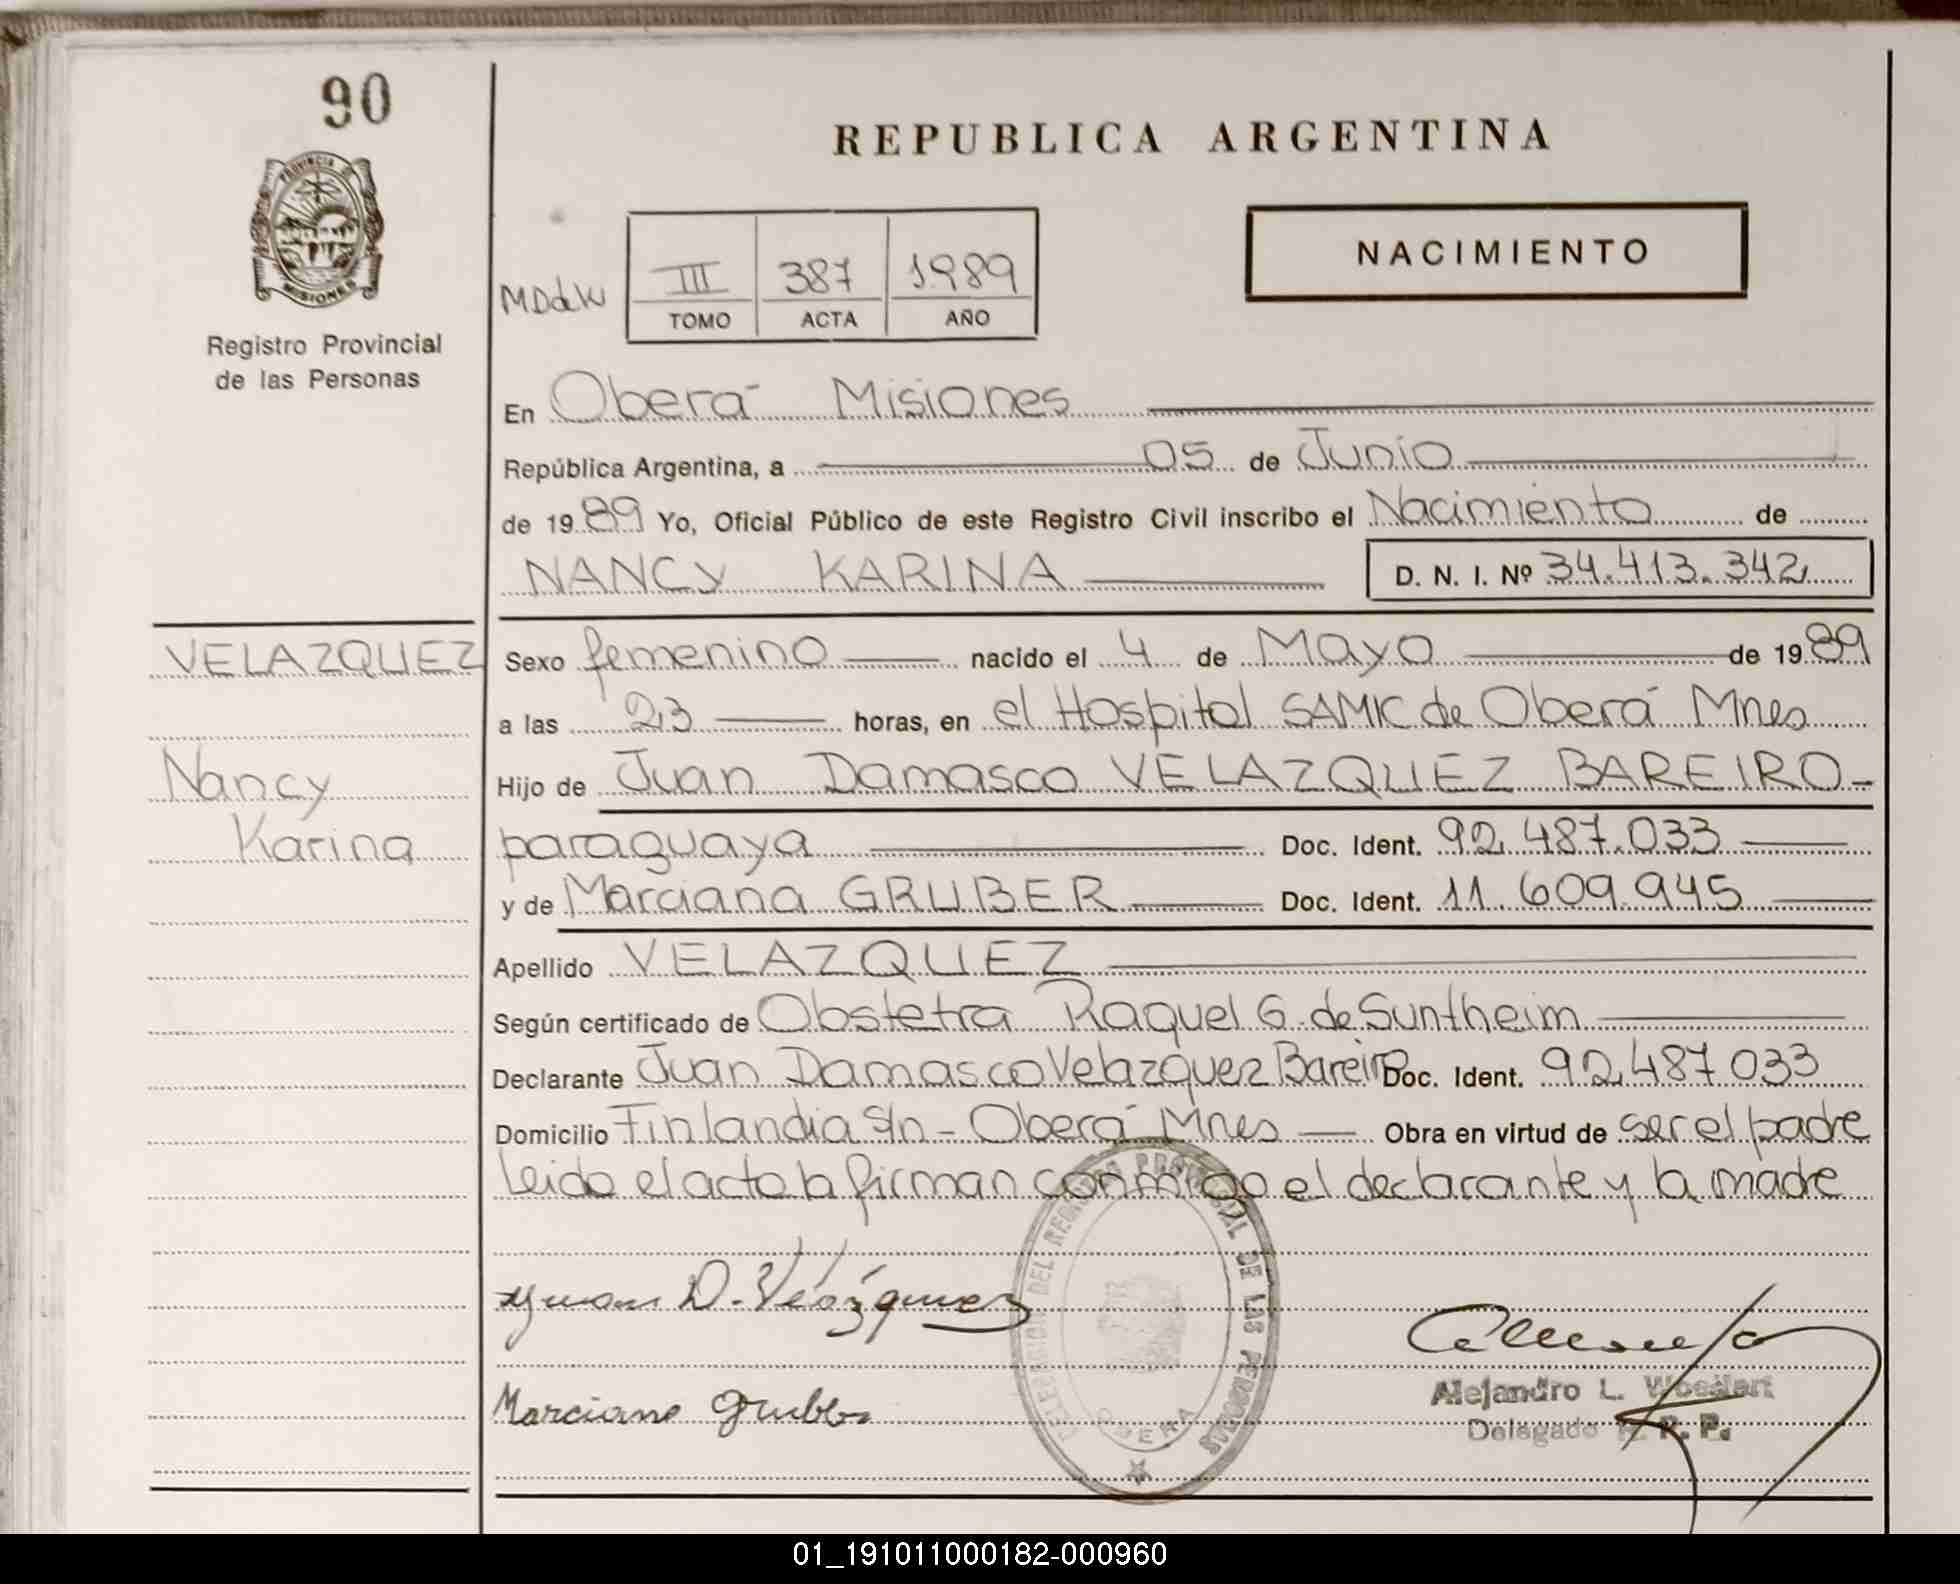 90
PROVINCIA DE
MISIONES
Registro Provincial
de las Personas
REPUBLICA ARGENTINA
NACIMIENTO
III 387 1989
TOMO ACTA AÑO
En Oberá Misiones
República Argentina, a 05 de Junio
de 1989 Yo, Oficial Público de este Registro Civil inscribo el Nacimiento de
NANCY KARINA D. N. I. Nº 34.413.342
VELAZQUEZ
Nancy
Karina
Sexo femenino nacido el 4 de Mayo de 1989
a las 23 horas, en el Hospital SAMIC de Oberá Mnes
Hijo de Juan Damasco VELAZQUEZ BAREIRO-
paraguaya Doc. Ident. 92.487.033
y de Marciana GRUBER Doc. Ident. 11.609.945
Apellido VELAZQUEZ
Según certificado de Obstetra Raquel G. de Suntheim
Declarante Juan Damasco Velazquez Bareiro Doc. Ident. 92.487.033
Domicilio Finlandia S/n - Oberá Mnes Obra en virtud de ser el padre
Leida el acta la firman conmigo el declarante y la madre
Juan D. Velázquez
DELEGACION DEL REGISTRO PROVINCIAL DE LAS PERSONAS
OBERA
Alejandro L.
Delegado R. R. P.
Marciana
01_191011000182-000960